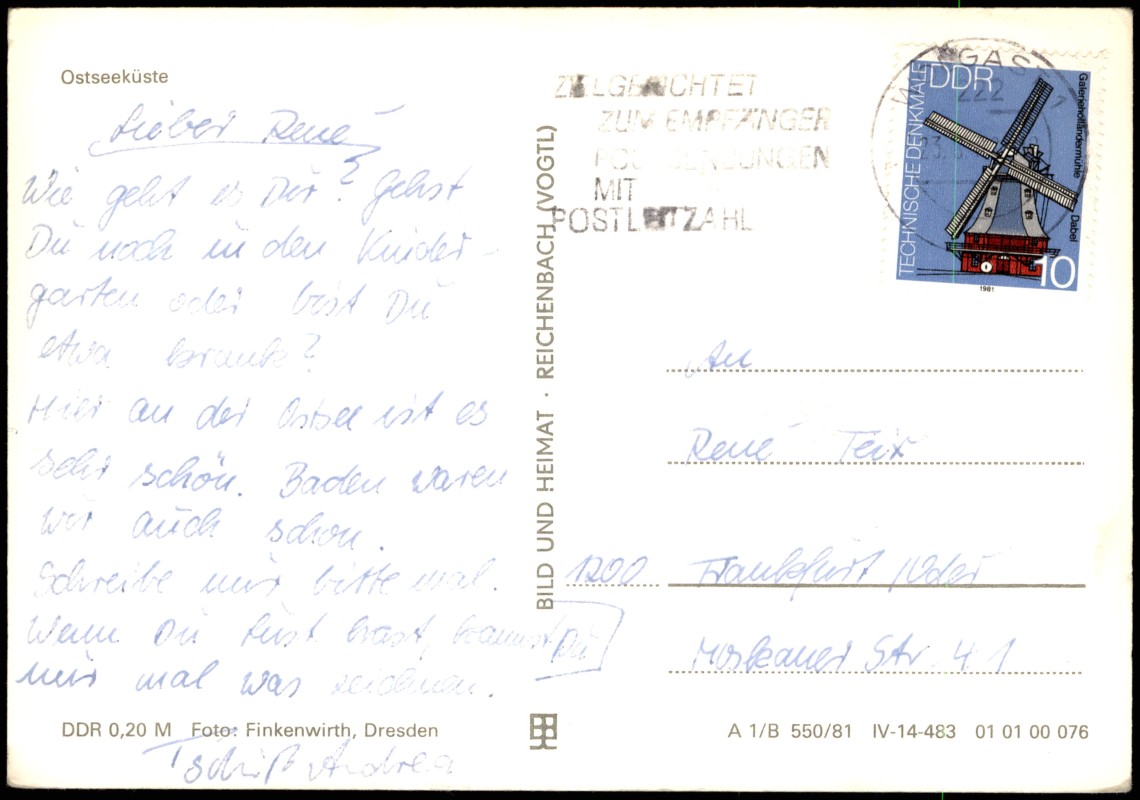 Ostseeküste
Lieber René
Wie geht es Dir? Gehst
Du noch in den Kinder-
garten oder bist Du
etwa krank?
Hier an der Ostsee ist es
sehr schön. Baden waren
wir auch schon.
Schreibe mir bitte mal.
Wenn Du Lust hast, kannst Du
mir mal was zeichnen.
Tschüß Andrea
DDR 0,20 M Foto: Finkenwirth, Dresden
BILD UND HEIMAT · REICHENBACH (VOGTL)
ZIELGERICHTET
ZUM EMPFÄNGER
POSTSENDUNGEN
MIT
POSTLEITZAHL
WOLGAST
222
TECHNISCHE DENKMALE
DDR
Galerieholländermühle Dabel
10
1981
An
René
1200 Frankfurt /Oder
Moskauer Str. 41
A 1/B 550/81 IV-14-483 01 01 00 076